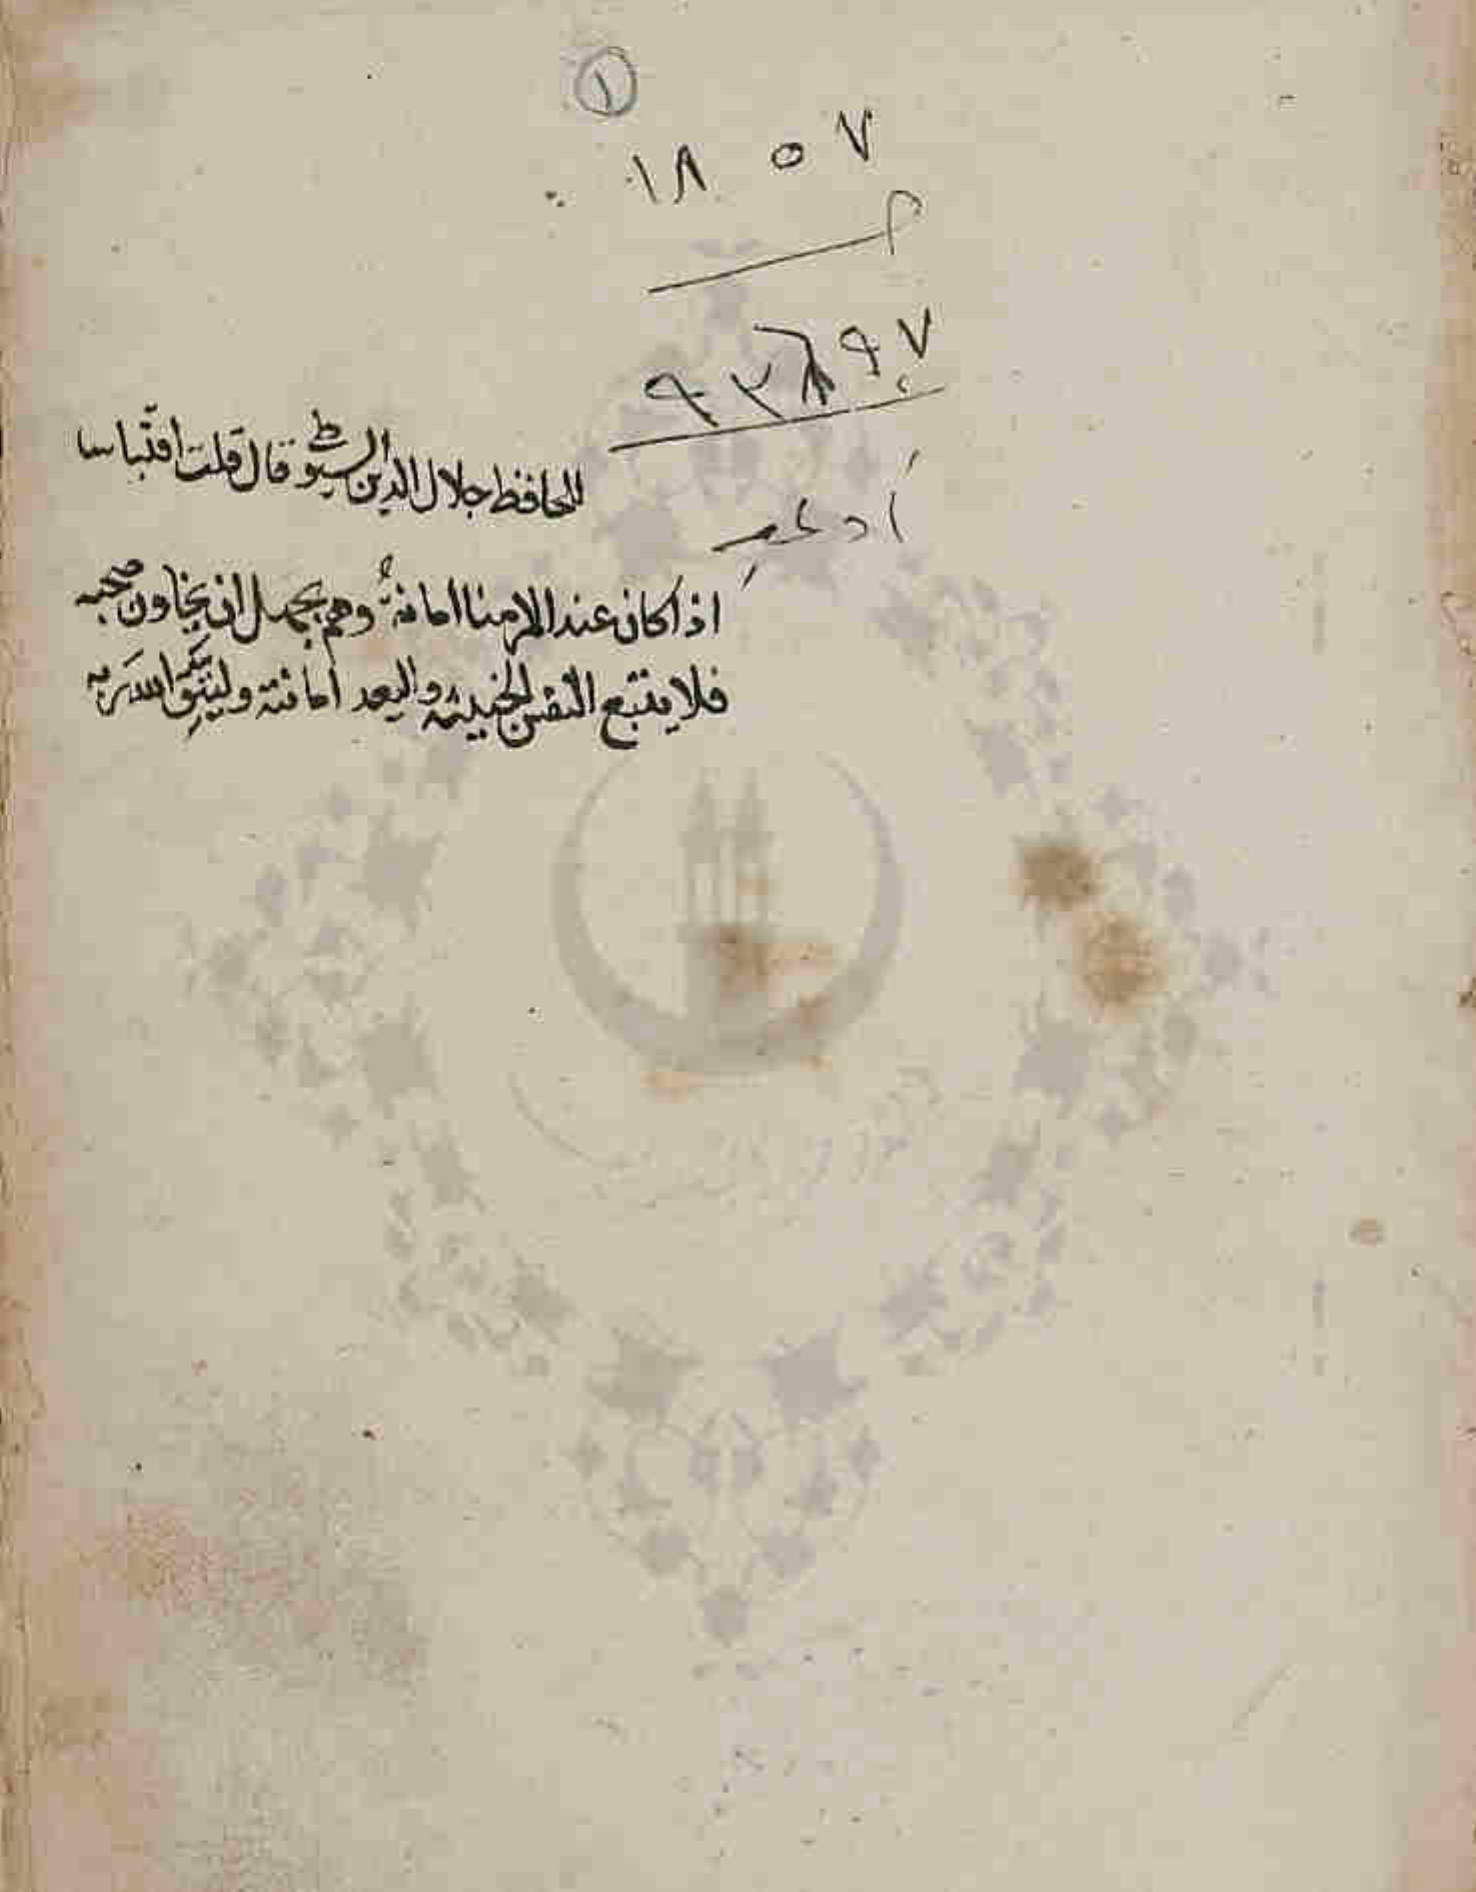 ١
١٨٥٧
م
٩٣٨٩٧
أدعية
للحافظ جلال الدين السيوطي قال قلت اقتباسا
اذا كان عند المر منا امانة وهم بجهل ان يخاون صحبه
فلا يتبع النفس الخبيثة واليعد امانته وليتق الله ربه